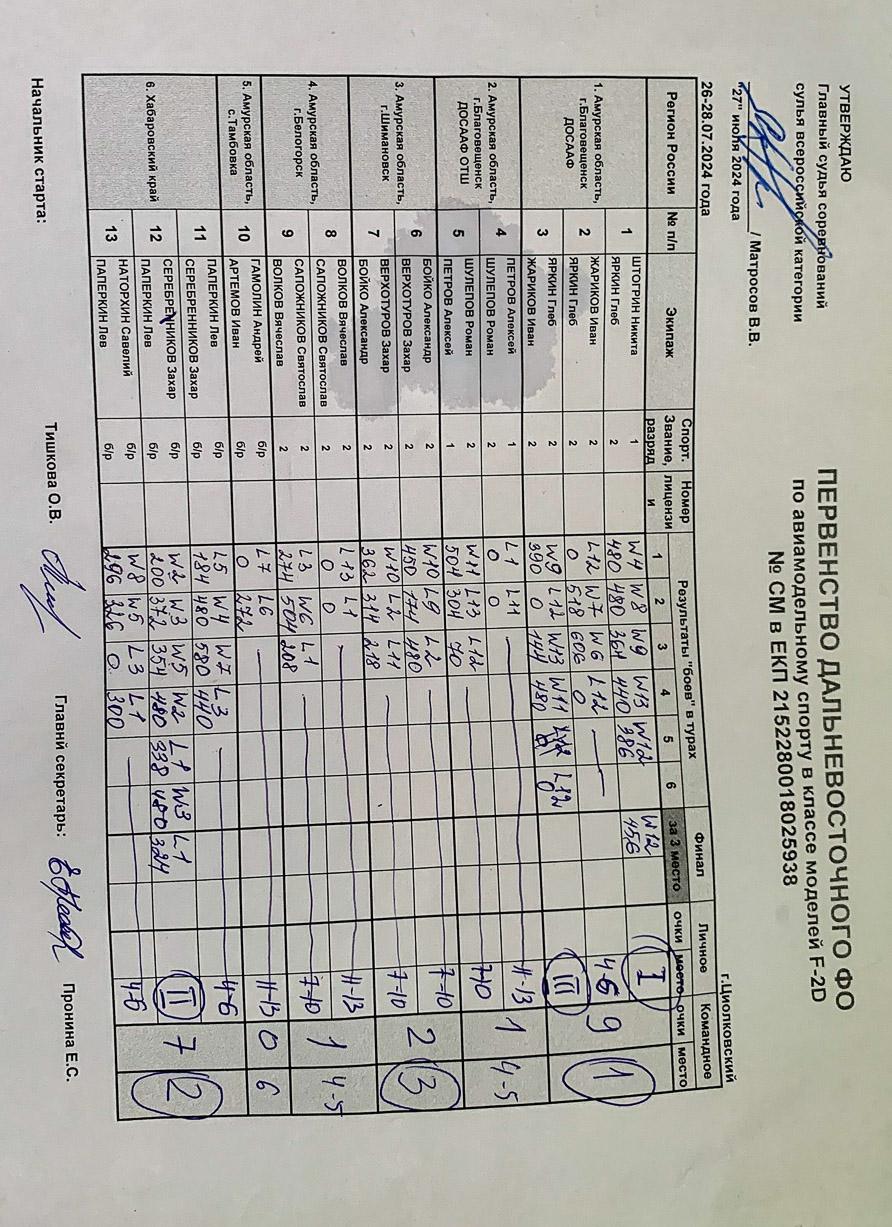 УТВЕРЖДАЮ
Главный судья соревнований
сулья всероссийской категории
/ Матросов В.В.
"27" июля 2024 года
26-28.07.2024 года
ПЕРВЕНСТВО ДАЛЬНЕВОСТОЧНОГО ФО
по авиамодельному спорту в классе моделей F-2D
№ СМ в ЕКП 2152280018025938
г.Циолковский
Регион России № п/п Экипаж Спорт. Звание, разряд Номер лицензи и Результаты "боев" в турах Финал Личное Командное
1 2 3 4 5 6 за 3 место очки место очки место
1. Амурская область, г.Благовещенск ДОСААФ
1 ШТОГРИН Никита 1 W4 W8 W9 W13 W12 W12 I
ЯРКИН Глеб 2 480 480 361 440 386 456
2 ЖАРИКОВ Иван 2 L12 W7 W6 L12 — 4-6 9 1
ЯРКИН Глеб 2 0 518 606 0
3 ЯРКИН Глеб 2 W9 L12 W13 W11 L12 III
ЖАРИКОВ Иван 2 390 0 144 480 0
2. Амурская область, г.Благовещенск ДОСААФ ОТШ
4 ПЕТРОВ Алексей 1 L1 L11 — 11-13 1 4-5
ШУЛЕПОВ Роман 2 0 0
5 ШУЛЕПОВ Роман 2 W11 L13 L12 — 7-10
ПЕТРОВ Алексей 1 504 304 70
3. Амурская область, г.Шимановск
6 БОЙКО Александр 2 W10 L9 L2 — 7-10 2 3
ВЕРХОТУРОВ Захар 2 450 174 480
7 ВЕРХОТУРОВ Захар 2 W10 L2 L11 — 7-10
БОЙКО Александр 2 362 314 218
4. Амурская область, г.Белогорск
8 ВОЛКОВ Вячеслав 2 L13 L1 — 11-13 1 4-5
САПОЖНИКОВ Святослав 2 0 0
9 САПОЖНИКОВ Святослав 2 L3 W6 L1 — 7-10
ВОЛКОВ Вячеслав 2 274 504 208
5. Амурская область, с.Тамбовка
10 ГАМОЛИН Андрей б/р L7 L6 — 11-13 0 6
АРТЕМОВ Иван б/р 0 272
6. Хабаровский край
11 ПАПЕРКИН Лев б/р L5 W4 W7 L3 — 4-6 7 2
СЕРЕБРЕННИКОВ Захар б/р 184 480 580 440
12 СЕРЕБРЕННИКОВ Захар б/р W2 W3 W5 W2 L1 W3 L1 II
ПАПЕРКИН Лев б/р 200 372 354 480 338 480 324
13 НАТОРХИН Савелий б/р W8 W5 L3 L1 — 4-6
ПАПЕРКИН Лев б/р 296 326 0 300
Начальник старта: Тишкова О.В. Главнй секретарь: Пронина Е.С.